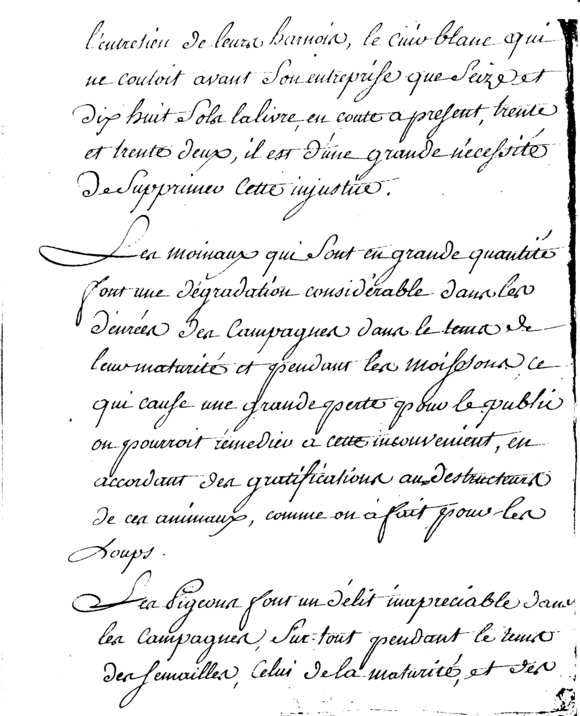 l'entretien de leurs harnois, le cuir blanc qui
ne coutoit avant son entreprise que Seize et
dix huit Sols la livre, en coute a présent, trente
et trente deux, il est d'une grande nécessité
de Supprimer cette injustice.
Les moinaux qui Sont en grande quantité
font une dégradation considérable dans les
dénrées des Campagnes dans le tems de
leur maturité et pendant les moissons ce
qui cause une grande perte pour le public
on pourroit rémedier a cette inconvenient, en
accordant des gratifications au destructeurs
de ces animaux, comme on à fait pour les
Loups.
Les Pigeons font un délit inapreciable dans
les Campagnes, Sur-tout pendant le tems
des Semailles, Celui de la maturité, et des